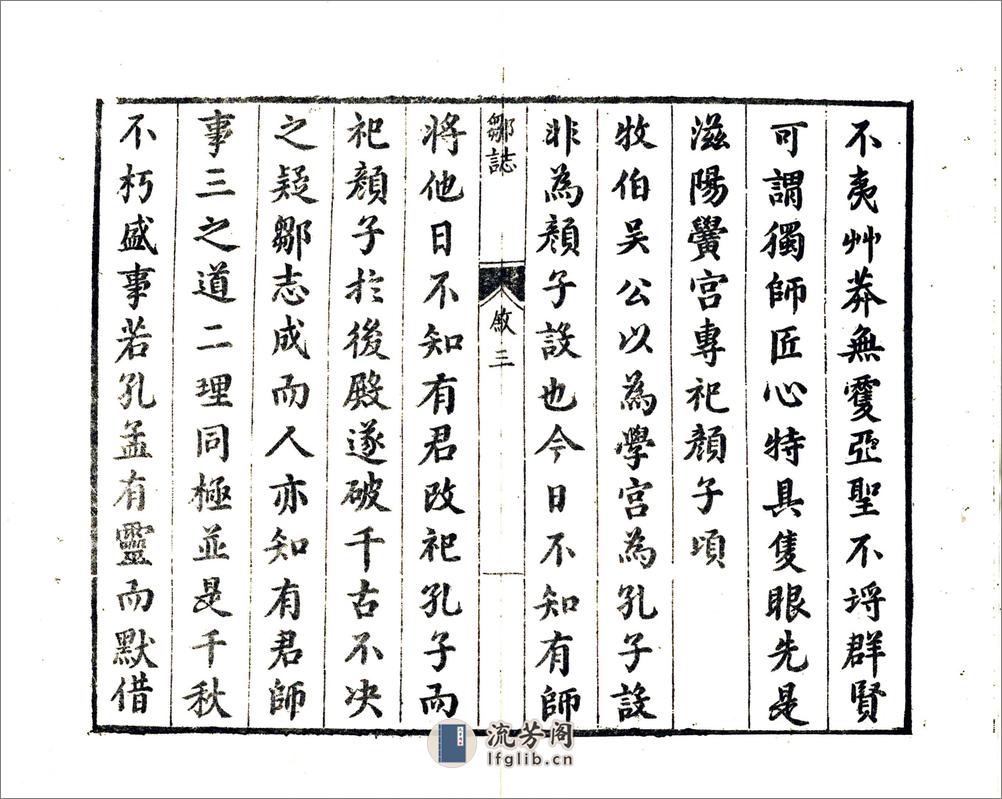 不夷艸莽無䨥亞聖不埒群賢
可謂獨師匠心特具隻眼先是
滋陽黌宮專祀顏子頃
牧伯吴公以為學宮為孔子設
非為顏子設也今日不知有師
鄒誌
敘三
將他日不知有君改祀孔子而
祀顏子於後殿遂破千古不决
之疑鄒志成而人亦知有君師
事三之道二理同極並是千秋
不朽盛事若孔孟有靈而默借
流芳阁
lfglib.cn